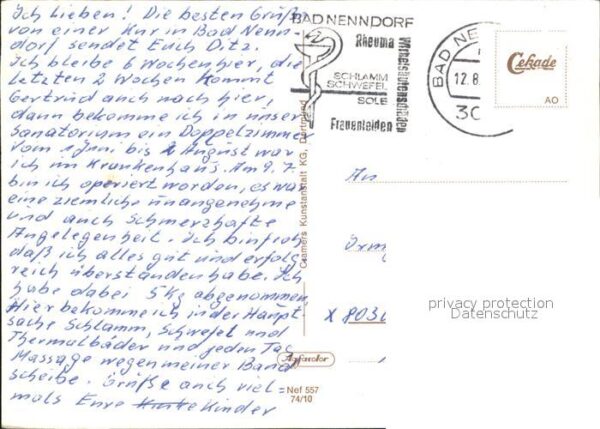 Ich Lieben! Die besten Grüße
von einer Kur in Bad Nenn-
dorf sendet Euch Ditz.
Ich bleibe 6 Wochen hier, die
letzten 2 Wochen kommt
Gertrud auch nach hier,
dann bekomme ich in unser
Sanatorium ein Doppelzimmer
Vom 1 Juni bis August war
ich im Krankenhaus. Am 9.7.
bin ich operiert worden, es war
eine ziemliche unangenehme
und auch schmerzhafte
Angelegenheit. Ich bin froh
daß ich alles gut und erfolg
reich überstanden habe. Ich
habe dabei 5 Kg abgenommen
Hier bekomme ich in der Haupt
sache Schlamm, Schwefel und
Thermalbäder und jeden Tag
Massage wegen meiner Band
scheibe. Grüße auch viel-
mals Eure Kinder
BAD NENNDORF
Rheuma
Wirbelsäulenschäden
SCHLAMM
SCHWEFEL
SOLE
Frauenleiden
BAD NE
12.8.
30
Cekade
AO
Cramers Kunstanstalt KG, Dortmund
An
X 8030
privacy protection
Datenschutz
Agfacolor
Nef 557
74/10